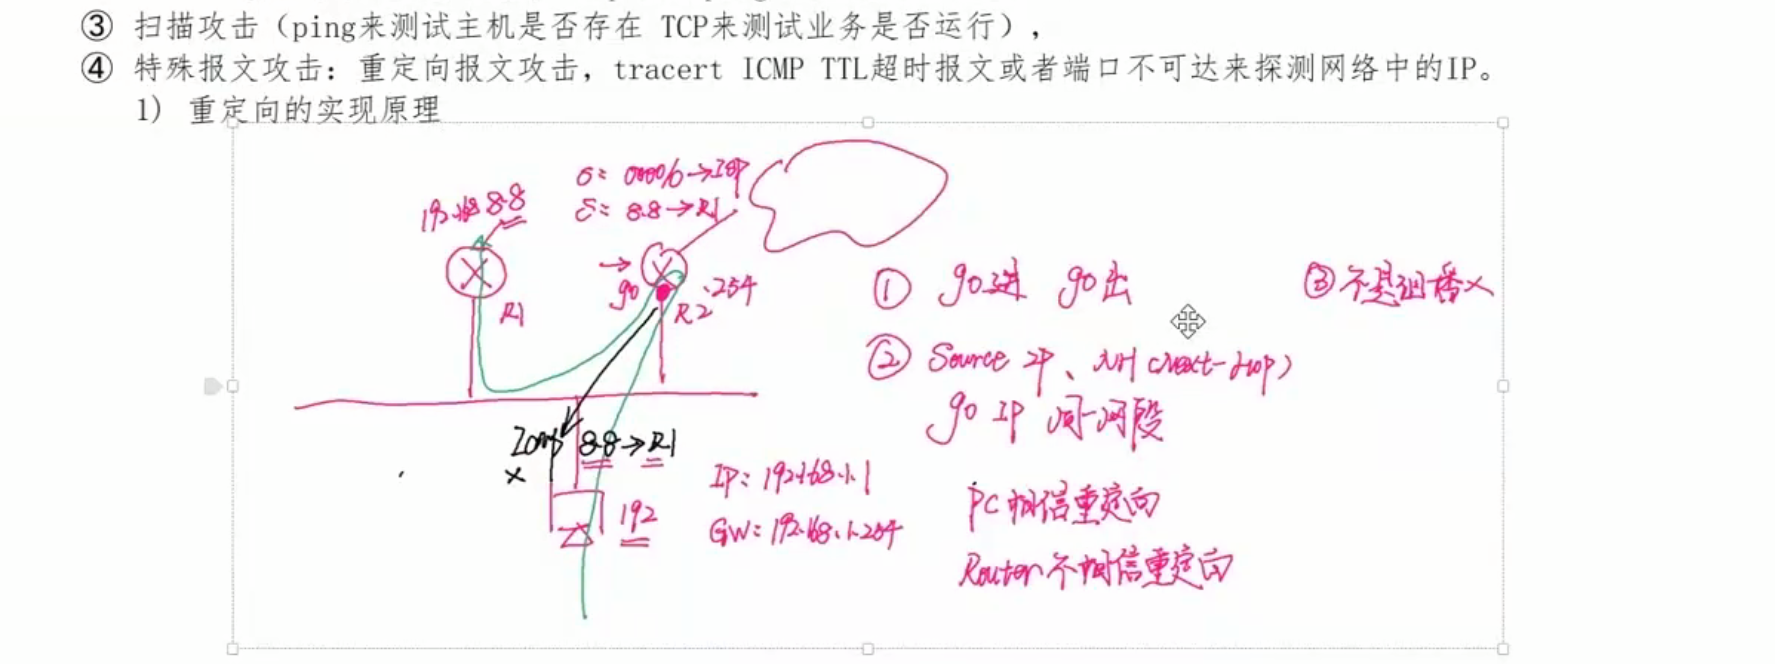 ③ 扫描攻击（ping来测试主机是否存在 TCP来测试业务是否运行），
④ 特殊报文攻击：重定向报文攻击，tracert ICMP TTL超时报文或者端口不可达来探测网络中的IP。
1) 重定向的实现原理
192.168.8.8
S: 0000/0→ISP
S: 8.8→R1
R1
g0
.254
R2
① g0进 g0出
③不是组播
② Source IP、NH (Next-Hop)
g0 IP 同一网段
Icmp 8.8→R1
x
192
IP: 192.168.1.1
GW: 192.168.1.254
PC相信重定向
Router不相信重定向